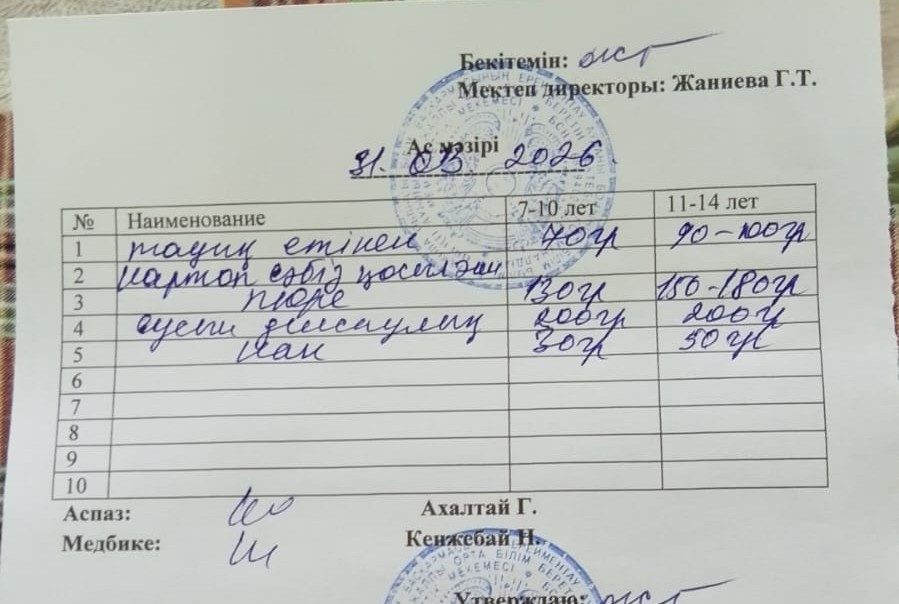 Бекітемін:
Мектеп директоры: Жаниева Г.Т.
Ас мәзірі
31. 03 2026.
№ Наименование 7-10 лет 11-14 лет
1 тауық етінен 70гр 90-100гр
2 картоп сәбіз қосылған
3 пюре 130гр 150-180гр
4 200гр 200гр
5 нан 30гр 50гр
6
7
8
9
10
Аспаз: Ахалтай Г.
Медбике: Кенжебай Н.
Утверждаю: